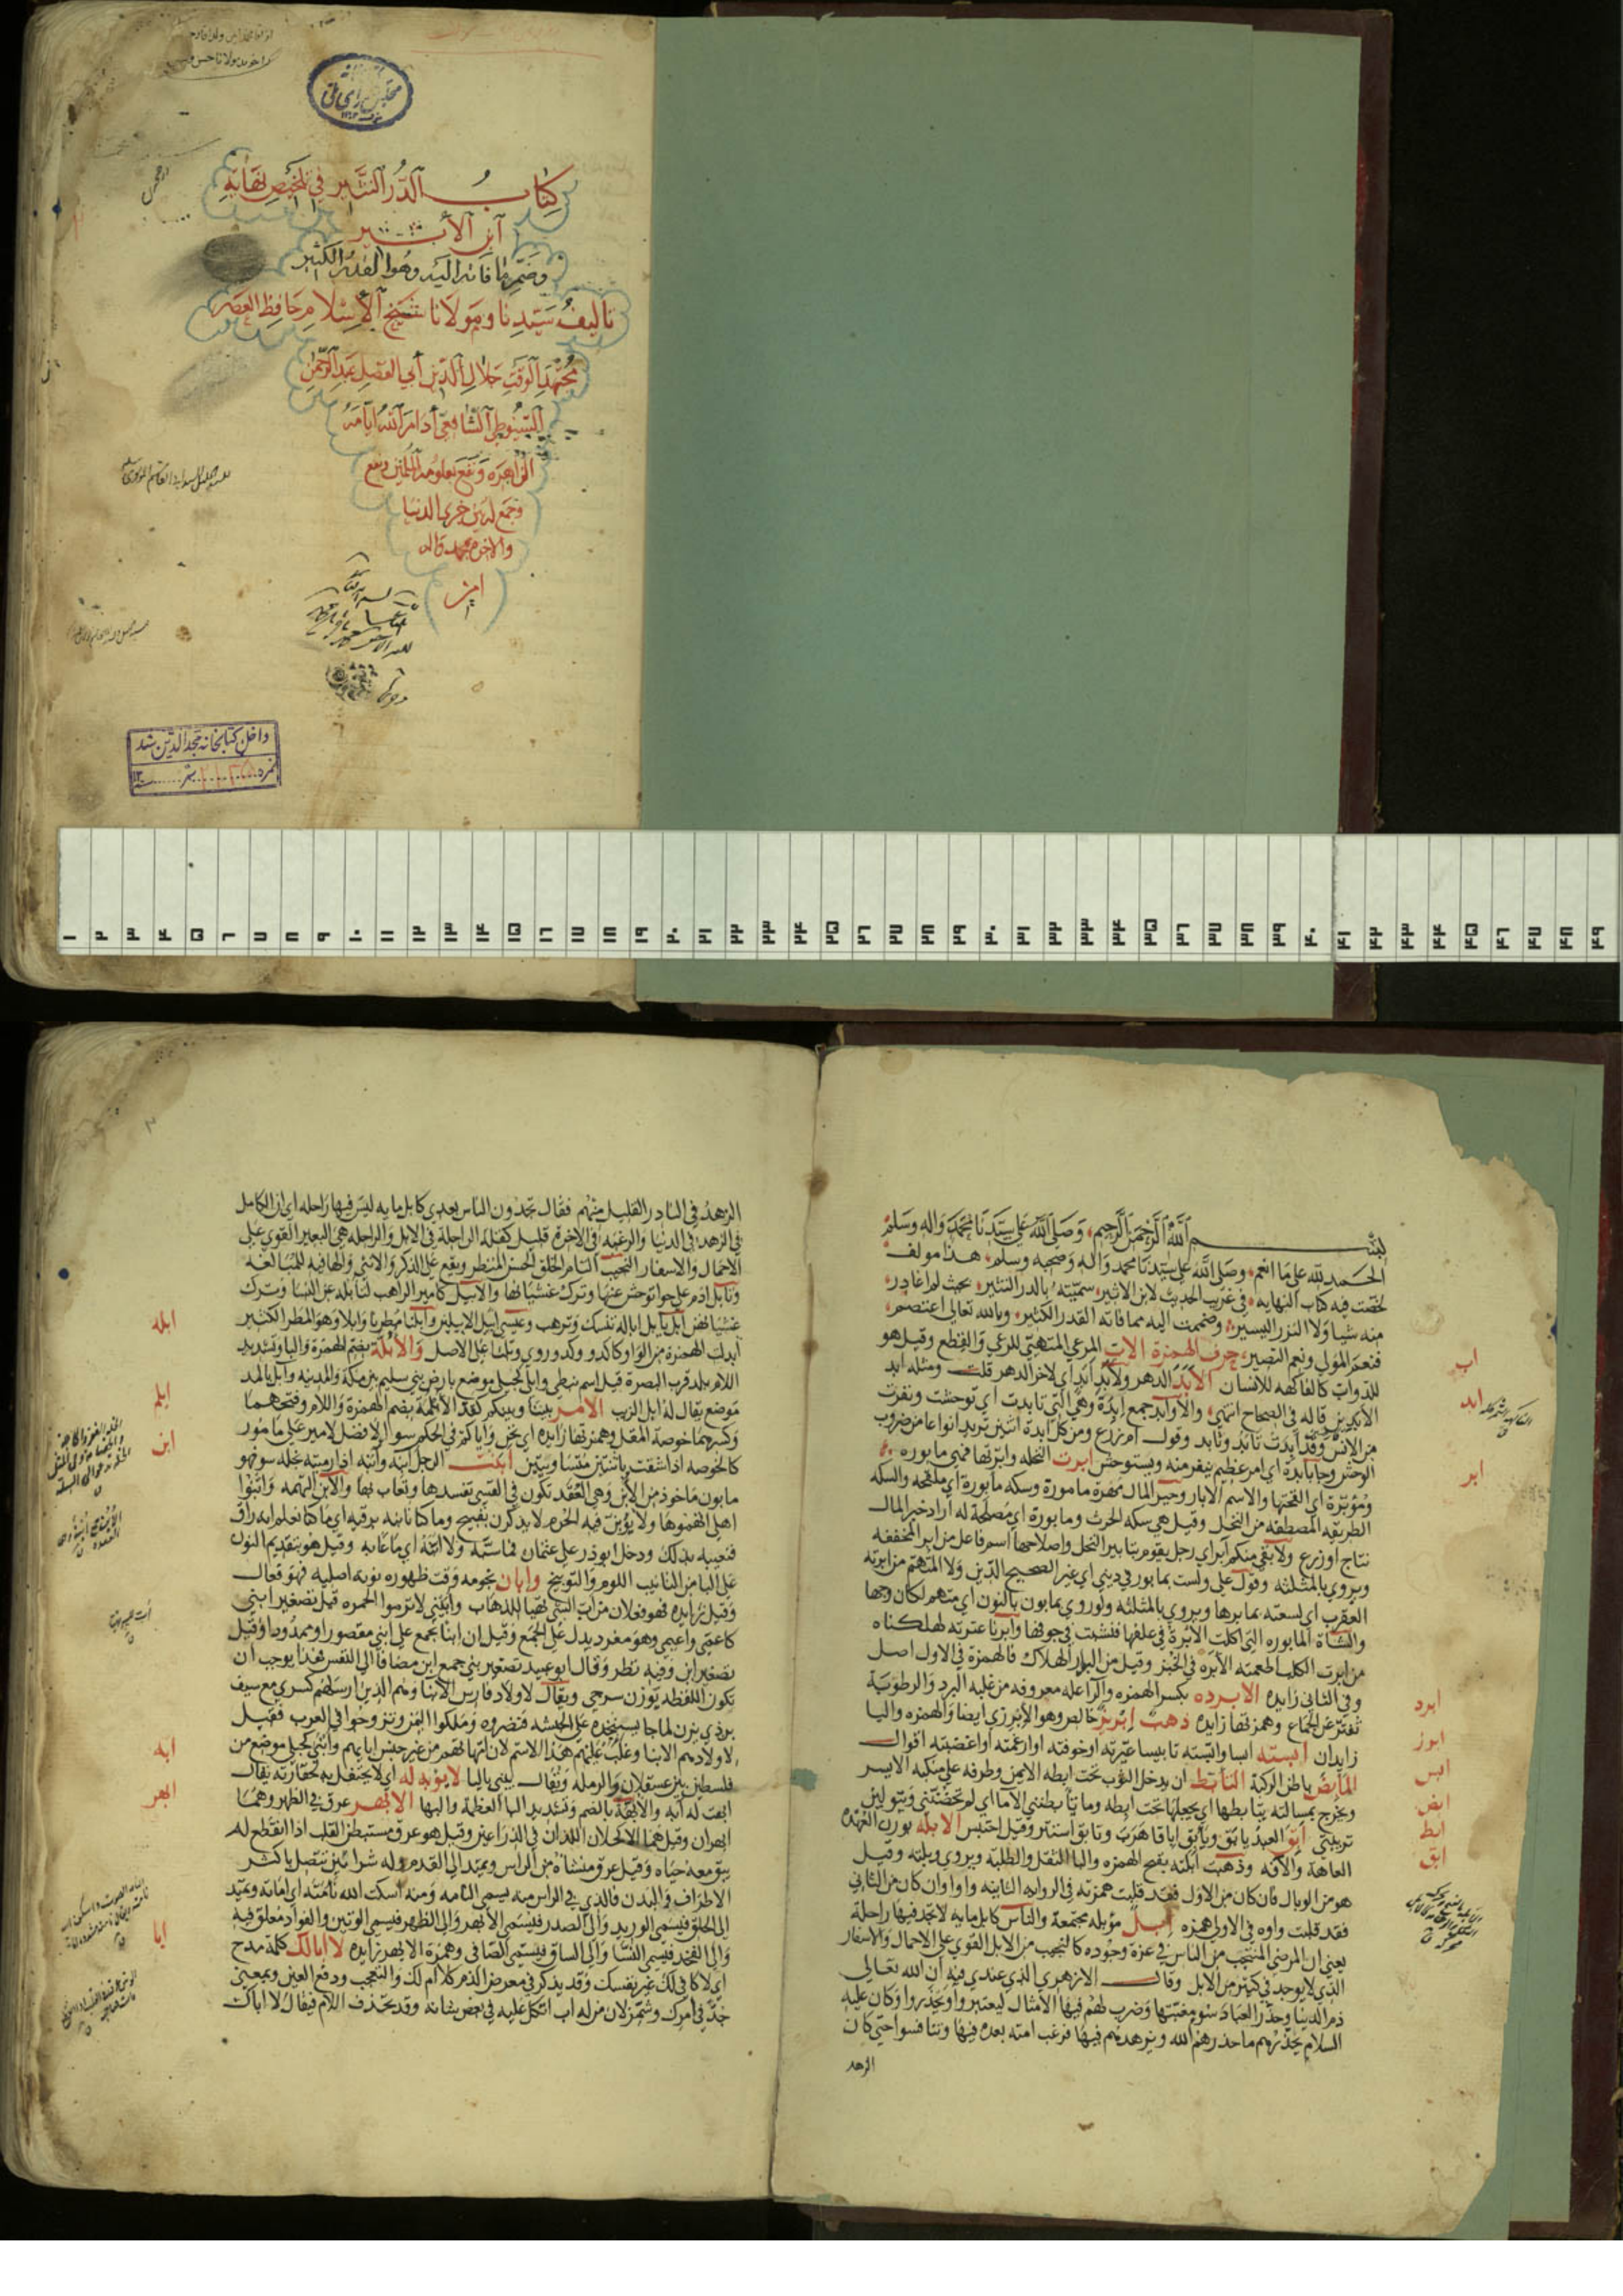 كتاب الدر النثير في تلخيص نهاية
ابن الأثير
وضم ما فاته اليه وهو القدر الكثير
تاليف سيدنا ومولانا شيخ الإسلام حافظ العصر
مجتهد الوقت جلال الدين أبي الفضل عبد الرحمن
السيوطي الشافعي أدام الله ايامه
الزاهره ونفع بعلومه المسلمين
وجمع له بين خيري الدنيا
والاخره بمحمد واله
امين
داخل كتابخانه مجد الدين شد
نمره
١ ٢ ٣ ٤ ٥ ٦ ٧ ٨ ٩ ١٠ ١١ ١٢ ١٣ ١٤ ١٥ ١٦ ١٧ ١٨ ١٩ ٢٠ ٢١ ٢٢ ٢٣ ٢٤ ٢٥ ٢٦ ٢٧ ٢٨ ٢٩ ٣٠ ٣١ ٣٢ ٣٣ ٣٤ ٣٥ ٣٦ ٣٧ ٣٨ ٣٩ ٤٠ ٤١ ٤٢ ٤٣ ٤٤ ٤٥ ٤٦ ٤٧ ٤٨ ٤٩
بسم الله الرحمن الرحيم وصلى الله على سيدنا محمد واله وسلم
الحمد لله على ما انعم وصلى الله على سيدنا محمد واله وصحبه وسلم هذا مولف
لخصت فيه كتاب النهايه في غريب الحديث لابن الاثير سميته بالدر النثير بحيث لم اغادر
منه شيا ولا النزر اليسير وضممت اليه مما فاته القدر الكثير وبالله تعالى اعتصم
فنعم المولى ونعم النصير حرف الهمزة الاب المرعي المتهيي للرعي والقطع وقيل هو
للدواب كالفاكهه للانسان الابد الدهر ولابد ابد اي لاخر الدهر قلت ومثله ابد
الابدين قاله في الصحاح انتهى والاوابد جمع ابدة وهي التي تابدت اي توحشت ونفرت
من الانس وقد ابدت تابد وتابد وقول ام زرع ومن كل ابدة اثنين تريد انواعا من ضروب
الوحش وجا بابدة اي امر عظيم ينفر منه ويستوحش ابرت النخله وابرتها فهي مابوره
ومؤبرة اي لقحتها والاسم الابار وخير المال مهرة مامورة وسكه مابورة اي ملقحه والسكه
الطريقه المصطفه من النخل وقيل هي سكه الحرث ومابورة اي مصلحة له اراد خير المال
نتاج او زرع ولا بقي منكم ابر اي رجل يقوم بتابير النخل واصلاحها اسم فاعل من ابر المخففه
ويروى بالمثلثه وقول علي ولست بمابور في ديني اي غير الصحيح الدين ولا المتهم من ابرته
العقرب اي لسعته بمابرها ويروى بالمثلثه ولو روي بمابون بالنون اي متهم لكان وجها
والشاة المابوره التي اكلت الابرة في علفها فنشبت في جوفها وابرنا عترته اهلكناه
من ابرت الكلب اطعمته الابره في الخبز وقيل من البوار الهلاك فالهمزة في الاول اصل
وفي الثاني زايده الابرده بكسر الهمزه والرا عله معروفه من غلبه البرد والرطوبة
تفتر عن الجماع وهمزتها زايده ذهب ابريز خالص وهو الابرزي ايضا والهمزه واليا
زايدان ابسته ابسا وابسته تابيسا عيرته او خوفته او ارغمته او اغضبته اقوال
المابض باطن الركبة التابط ان يدخل الثوب تحت ابطه الايمن وطرفه على منكبه الايسر
ويخرج بمسالته يتابطها اي يجعلها تحت ابطه وما تابطتني الاما اي لم تحضنني ويتولين
تربيتي ابق العبد يابق ويابق اباقا هرب وتابق استتر وقيل احتبس الابله بوزن العهده
العاهة والآفه وذهبت ابلته بفتح الهمزه والبا الثقل والطلبه ويروى وبلته وقيل
هو من الوبال فان كان من الاول فقد قلبت همزته في الروايه الثانيه واوا وان كان من الثاني
فقد قلبت واوه في الاولى همزه ابل مؤبله مجتمعة والناس كابل مايه لا تجد فيها راحلة
يعني ان المرضي المنتجب من الناس في عزة وجوده كالنجيب من الابل القوي على الاحمال والاسفار
الذي لا يوجد في كثير من الابل وقال الازهري الذي عندي فيه ان الله تعالى
ذم الدنيا وحذر العباد سوء مغبتها وضرب لهم فيها الامثال ليعتبروا ويحذروا وكان عليه
السلام يحذرهم ما حذرهم الله ويزهدهم فيها فرغب امته بعده فيها وتنافسوا حتى كان
الزهد
اب
ابد
ابر
ابرد
ابرز
ابس
ابض
ابط
ابق
الزهد في النادر القليل منهم فقال تجدون الناس بعدي كابل مايه ليس فيها راحله اي ان الكامل
في الزهد في الدنيا والرغبه في الاخرة قليل كقلة الراحلة في الابل والراحله هي البعير القوي على
الاحمال والاسفار النجيب التام الخلق الحسن المنظر ويقع على الذكر والانثى والها فيه للمبالغه
وتابل ادم على حوا توحش عنها وترك غشيانها والابيل كامير الراهب لتابله عن النسا وترك
غشيانهن ابل يابل ابالة تنسك وترهب وعيسى ابيل الابيلين وابلنا مطرنا وابلا وهو المطر الكثير
ابدلت الهمزة من الواو كاكد ووكد وروي وبلنا على الاصل والابلة بضم الهمزة والبا وتشديد
اللام بلد قرب البصرة قيل اسم نبطي وابلى كحبلى موضع بارض بني سليم بين مكة والمدينه وابل بالمد
موضع يقال له ابل الزيت الامر بيننا وبينكم كقد الابلمة بضم الهمزة واللام وفتحهما
وكسرهما خوصة المقل وهمزتها زايده اي نحن واياكم في الحكم سوا لا فضل لامير على مامور
كالخوصه اذا شقت باثنتين متساويتين ابنت الرجل ابنه وابنه اذا رميته بخله سو فهو
مابون ماخوذ من الابن وهي العقد تكون في القسي تفسدها وتعاب بها والابن التهمه وابنوا
اهلي اتهموها ولا تؤبن فيه الحرم لا يذكرن بقبيح وما كنا نابنه برقيه اي ما كنا نعلم انه راق
فنعيبه بذلك ودخل ابو ذر على عثمان فما سبه ولا ابنه اي ما عابه وقيل هو بتقديم النون
على البا من التانيب اللوم والتوبيخ وابان نجومه وقت ظهوره نونه اصليه فهو فعال
وقيل زايده فهو فعلان من اب الشي تهيا للذهاب وابيني لا ترموا الجمره قيل تصغير ابنى
كاعمى واعيمي وهو مفرد يدل على الجمع وقيل ان ابنا يجمع على ابنى مقصورا وممدودا وقيل
تصغير ابن وفيه نظر وقال ابو عبيد تصغير بني جمع ابن مضافا الى النفس فهذا يوجب ان
تكون اللفظه بوزن سريجي ويقال لاولاد فارس الابنا وهم الذين ارسلهم كسرى مع سيف
بن ذي يزن لما جا يستنجده على الحبشه فنصروه وملكوا اليمن وتزوجوا في العرب فقيل
لاولادهم الابنا وغلب عليهم هذا الاسم لان امهاتهم من غير جنس ابايهم وابنى كحبلى موضع من
فلسطين بين عسقلان والرمله ويقال يبنى باليا لا يؤبه له اي لا يحتفل به لحقارته يقال
ابهت له ابه والابهة بالضم وتشديد البا العظمة والبها الابهر عرق في الظهر وهما
ابهران وقيل هما الاكحلان اللذان في الذراعين وقيل هو عرق مستبطن القلب اذا انقطع لم
يبق معه حياه وقيل عرق منشاه من الراس ويمتد الى القدم وله شرايين تتصل باكثر
الاطراف والبدن فالذي في الراس منه يسمى النامه ومنه اسكت الله نامته اي اماته ويمتد
الى الحلق فيسمى الوريد والى الصدر فيسمى الابهر والى الظهر فيسمى الوتين والفواد معلق فيه
والى الفخذ فيسمى النسا والى الساق فيسمى الصافن وهمزة الابهر زايده لا ابالك كلمة مدح
اي لا كافي لك غير نفسك وقد يذكر في معرض الذم كلا ام لك والتعجب ودفع العين وبمعنى
جد في امرك وشمر لان من له اب اتكل عليه في بعض شانه وقد تحذف اللام فيقال لا اباك
ابله
ابلم
ابن
ابه
ابهر
ابا